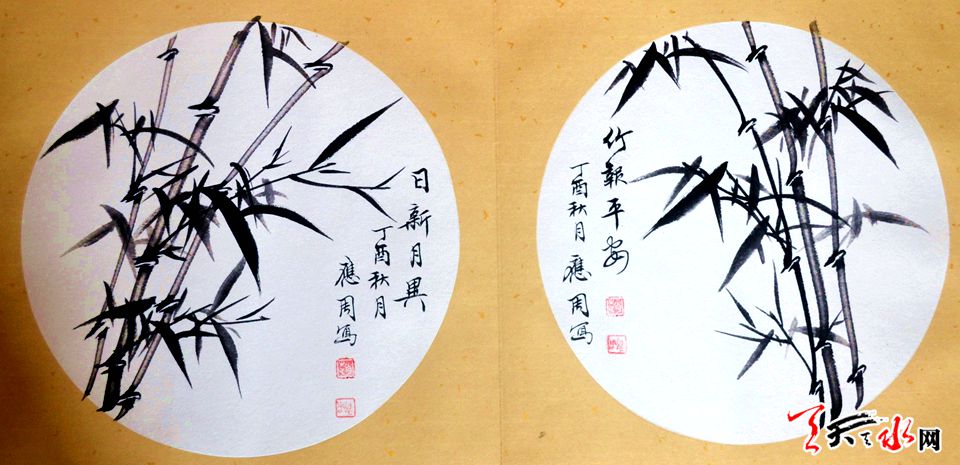 日新月異
丁酉秋月
應周寫
竹報平安
丁酉秋月 應周寫
天天天水网